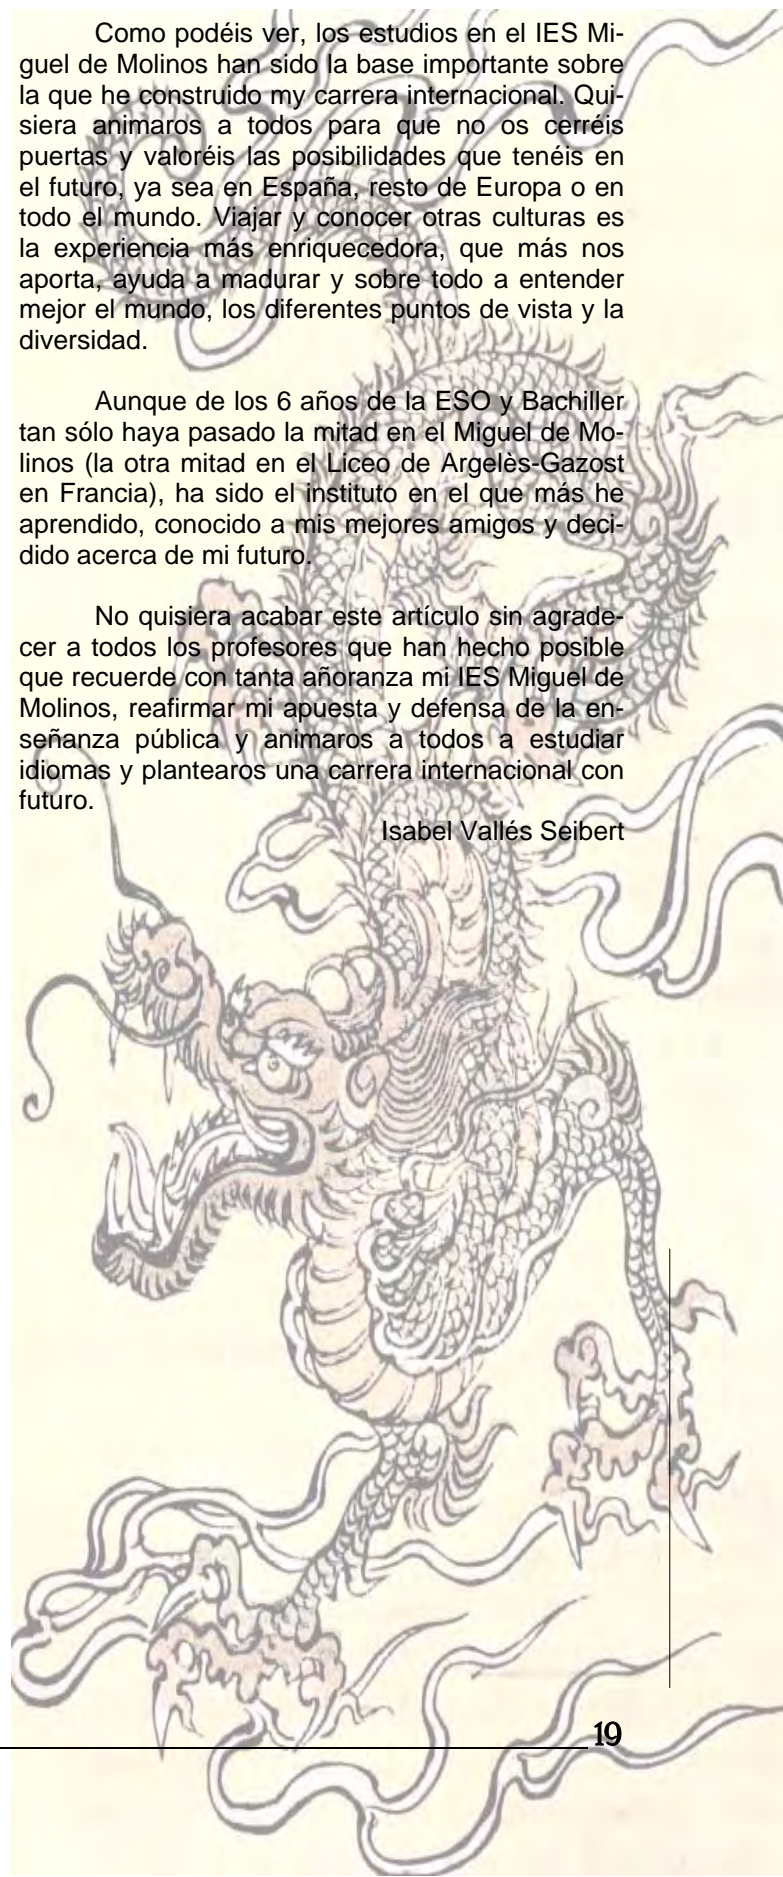 Como podéis ver, los estudios en el IES Mi-
guel de Molinos han sido la base importante sobre
la que he construido my carrera internacional. Qui-
siera animaros a todos para que no os cerréis
puertas y valoréis las posibilidades que tenéis en
el futuro, ya sea en España, resto de Europa o en
todo el mundo. Viajar y conocer otras culturas es
la experiencia más enriquecedora, que más nos
aporta, ayuda a madurar y sobre todo a entender
mejor el mundo, los diferentes puntos de vista y la
diversidad.
Aunque de los 6 años de la ESO y Bachiller
tan sólo haya pasado la mitad en el Miguel de Mo-
linos (la otra mitad en el Liceo de Argelès-Gazost
en Francia), ha sido el instituto en el que más he
aprendido, conocido a mis mejores amigos y deci-
dido acerca de mi futuro.
No quisiera acabar este artículo sin agrade-
cer a todos los profesores que han hecho posible
que recuerde con tanta añoranza mi IES Miguel de
Molinos, reafirmar mi apuesta y defensa de la en-
señanza pública y animaros a todos a estudiar
idiomas y plantearos una carrera internacional con
futuro.
Isabel Vallés Seibert
19